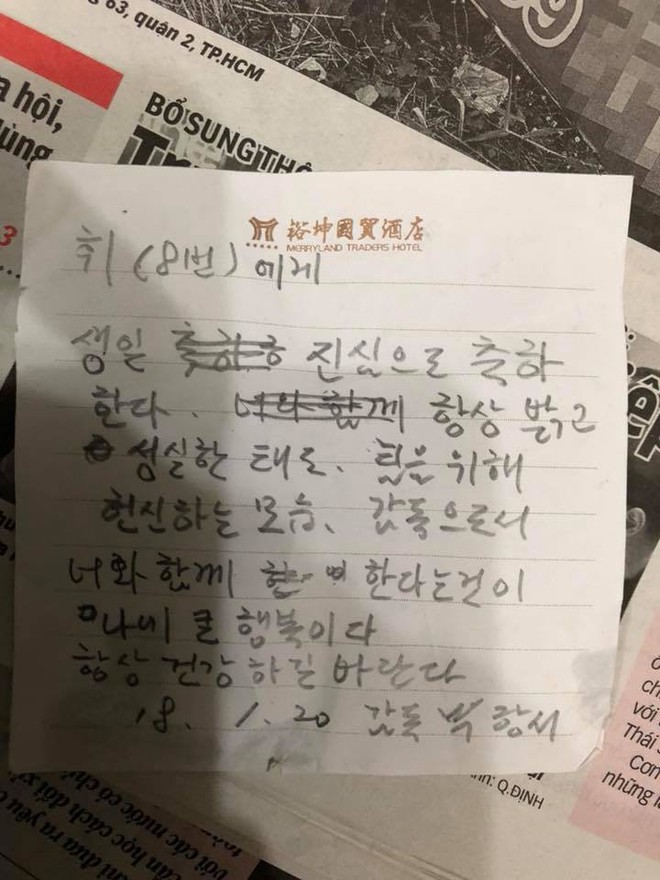 63, quận 2, TP.HCM
a hội,
BỔ SUNG
裕坤國貿酒店
MERRYLAND TRADERS HOTEL
휘 (8번) 에게
생일 축하 진심으로 축하
한다. 너와 함께 항상 밝고
성실한 태도, 팀을 위해
헌신하는 모습, 감독으로서
너와 함께 한다는것이
나에 큰 행복이다
항상 건강하길 바란다
18. 1. 20 감독 박항서
với
Thái
những
Q.ĐỊNH
với các nước có
cần học cách đối
khi đưa ra yêu